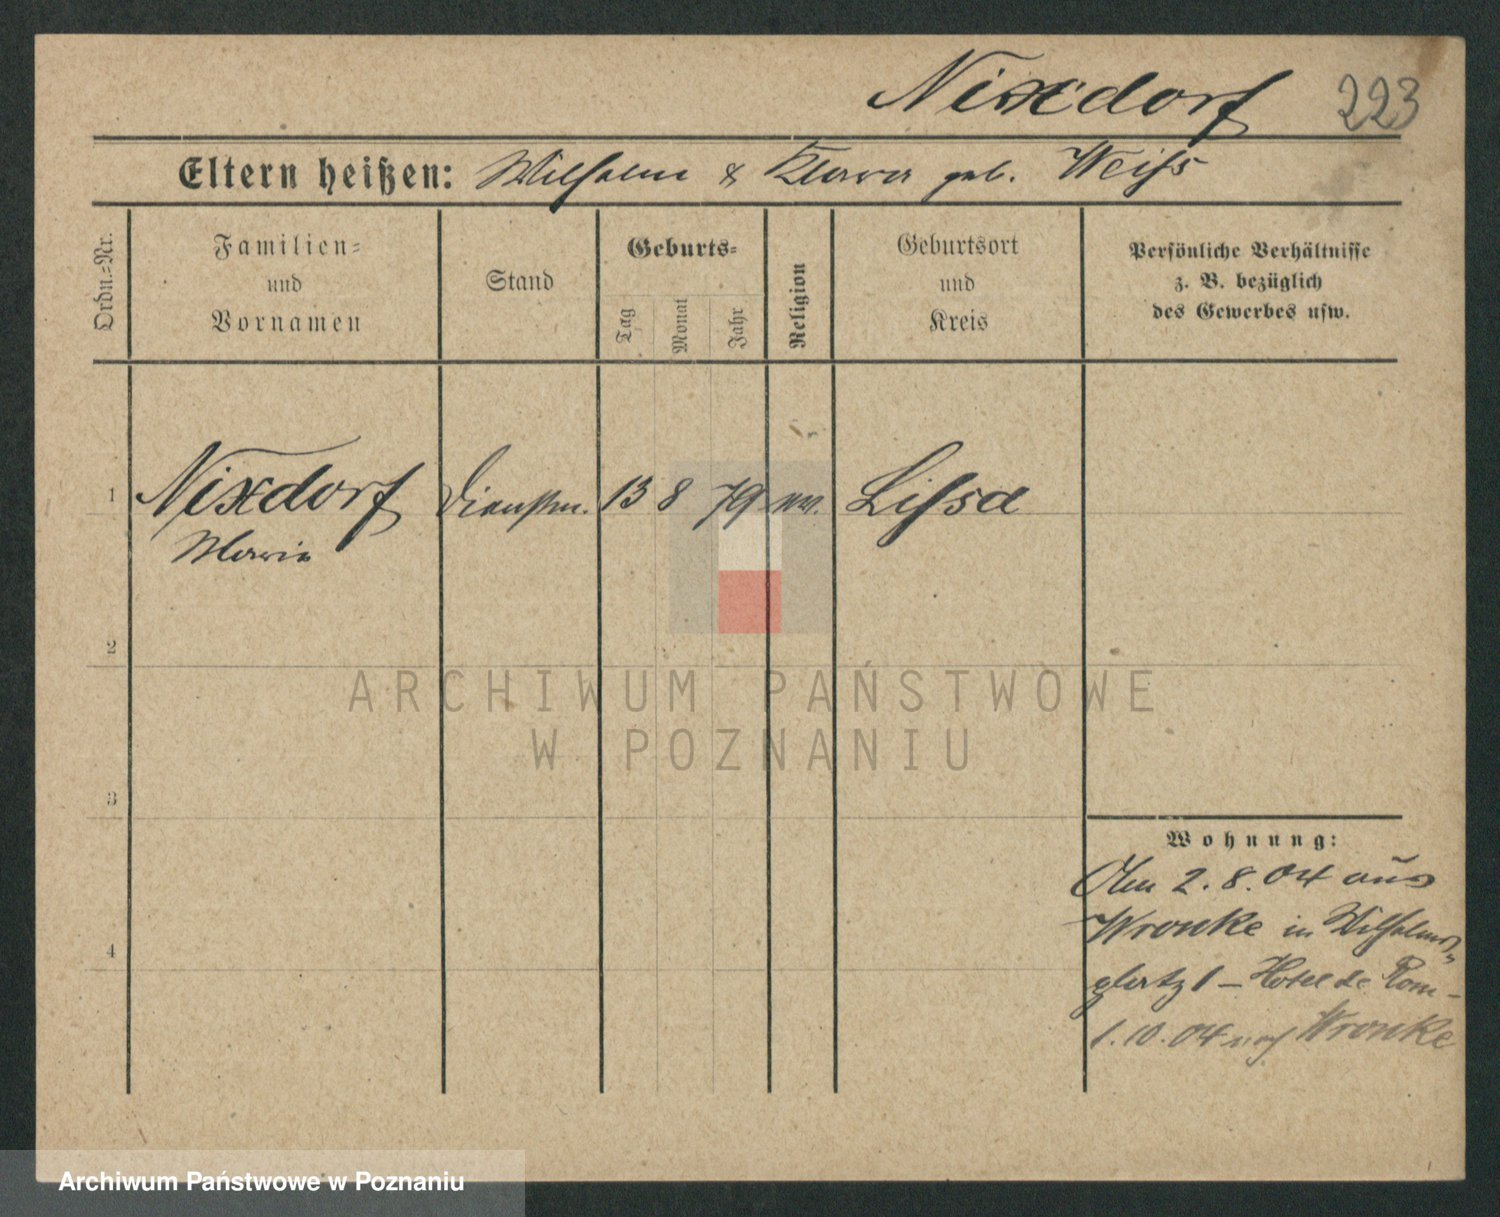 Nixdorf 223
Eltern heißen: Wilhelm & Klara geb. Weiß
Ordn.=Nr.
Familien=
und
Vornamen
Stand
Geburts=
Tag
Monat
Jahr
Religion
Geburtsort
und
Kreis
Persönliche Verhältnisse
z. B. bezüglich
des Gewerbes usw.
1 Nixdorf Dienstm. 13 8 79 ev. Lissa
Marie
2
ARCHIWUM PAŃSTWOWE
W POZNANIU
3
Wohnung:
Am 2.8.04 aus
Wronke in Wilhelms=
platz 1 – Hotel de Rom –
4
1.10.04 nach Wronke
Archiwum Państwowe w Poznaniu